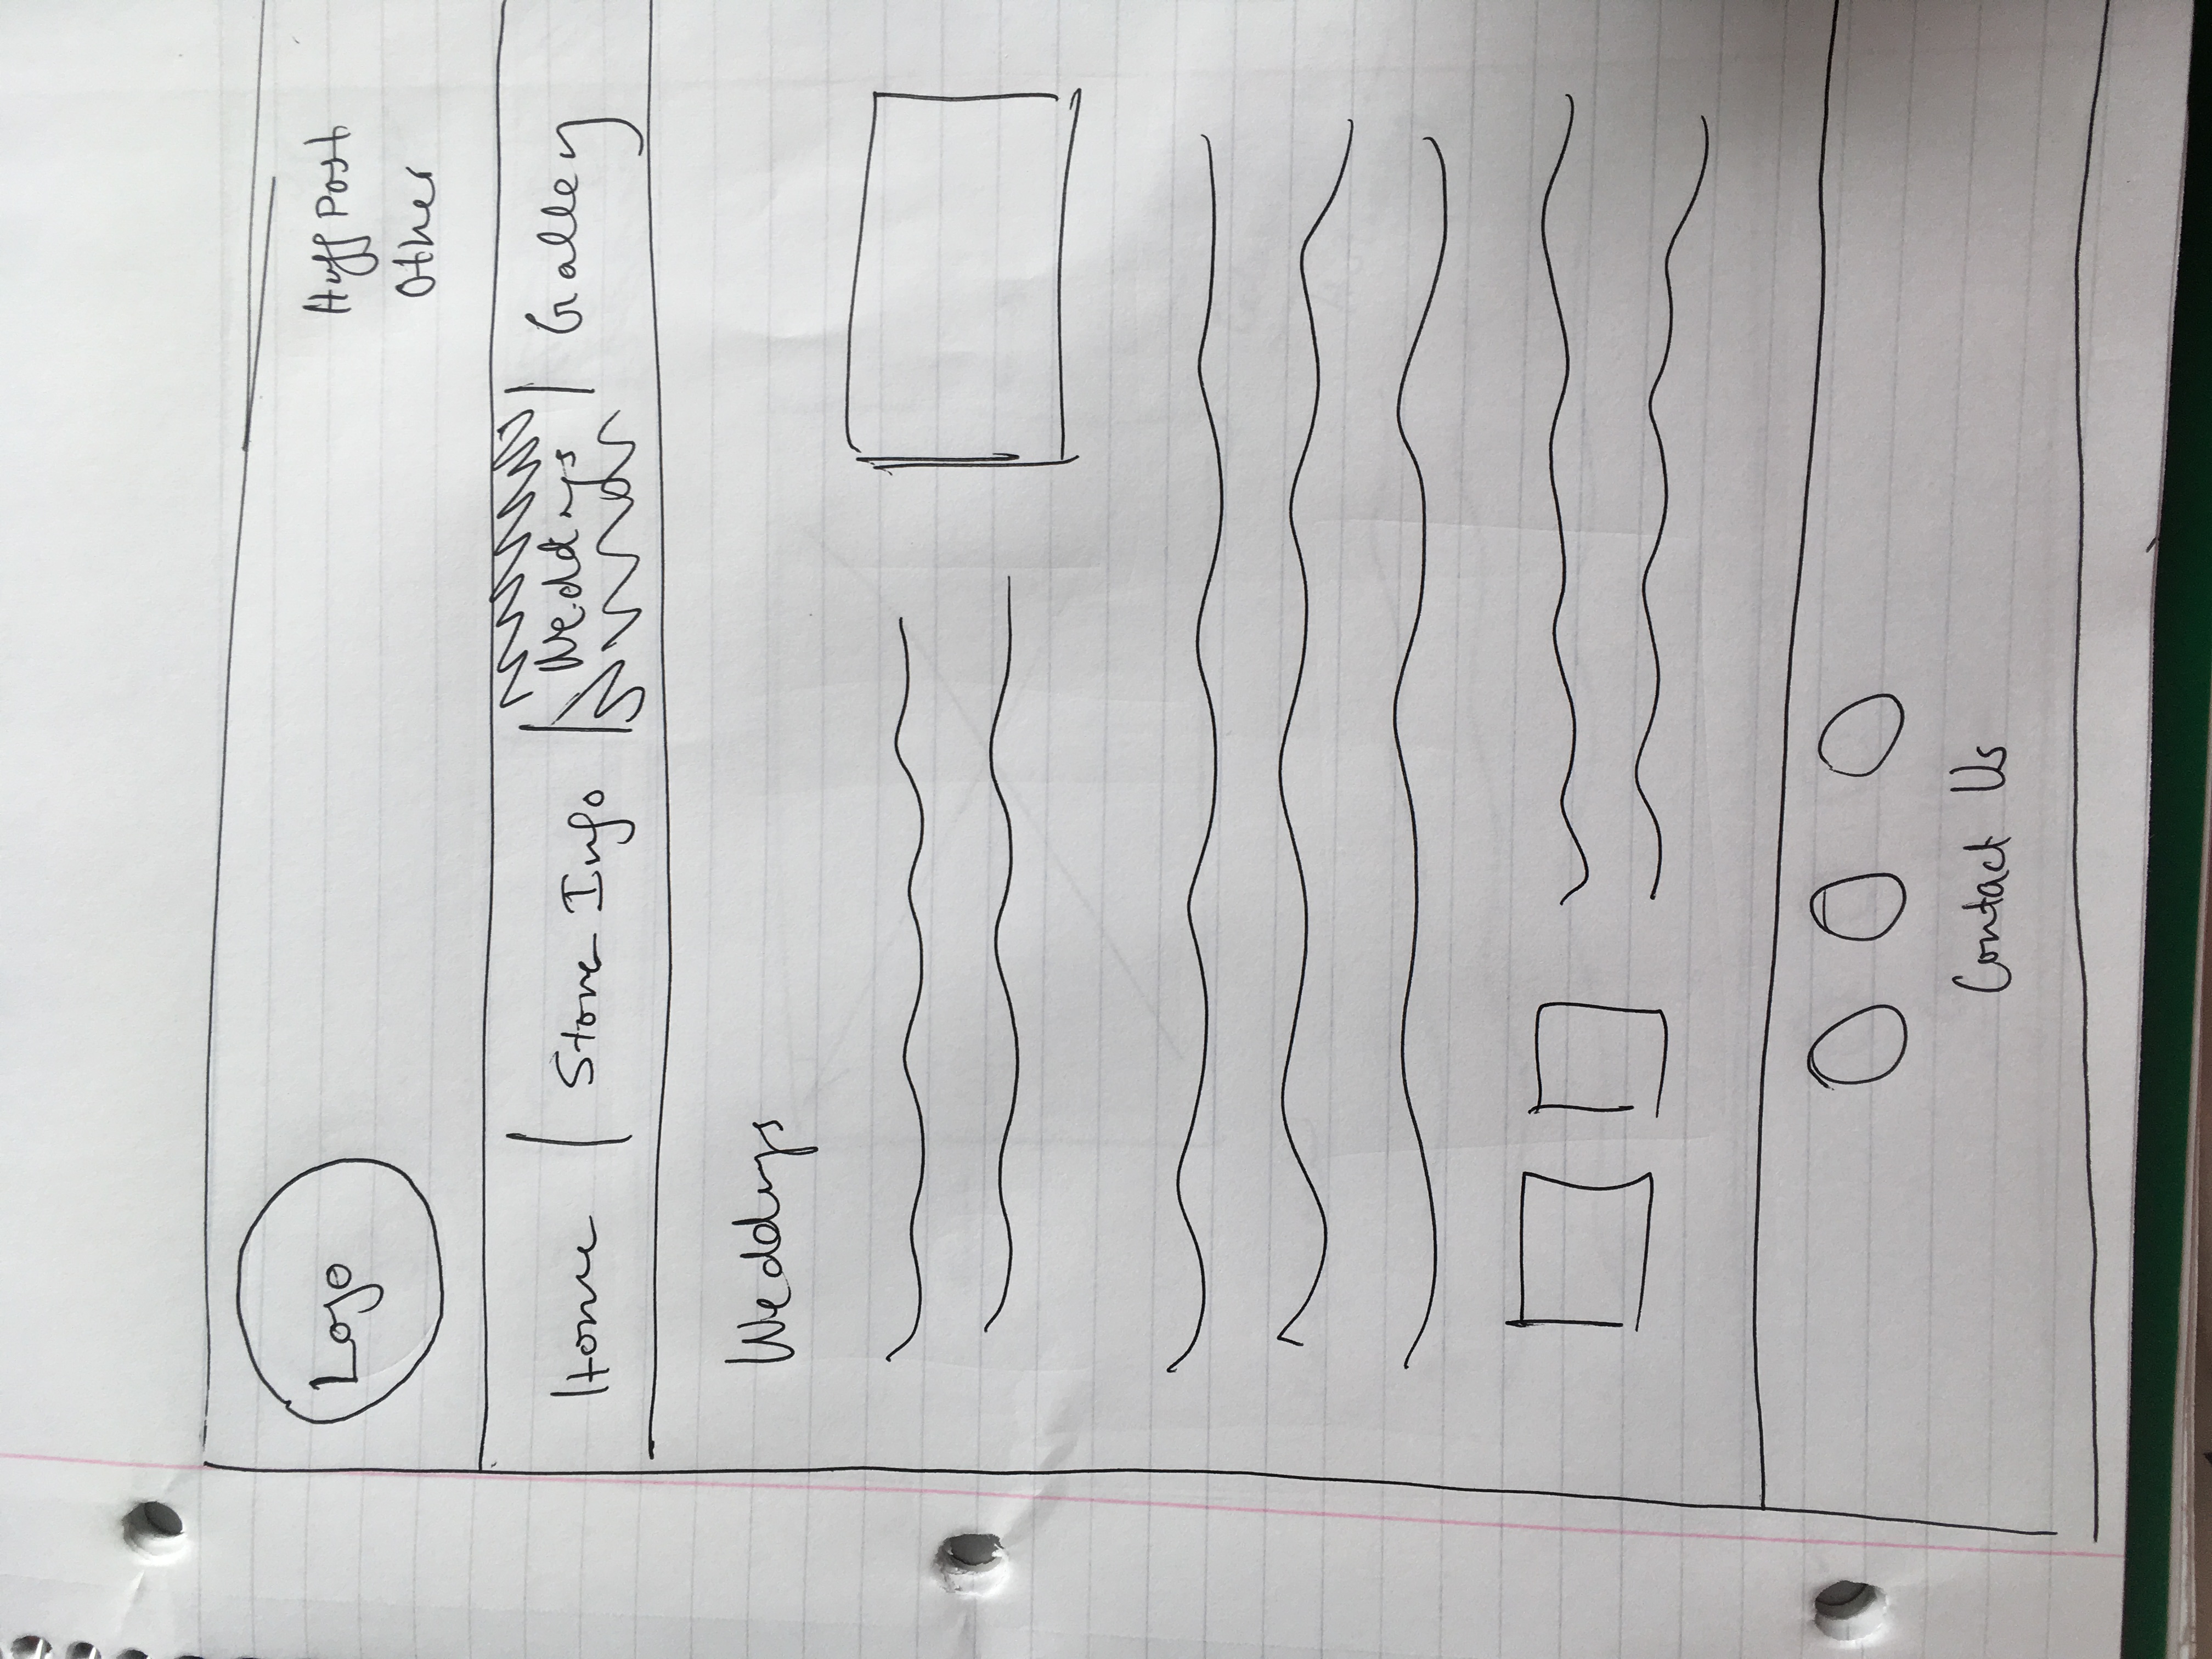 Logo
Huff Post
Other
Home | Store Info | Weddings | Gallery
Weddings
Contact Us